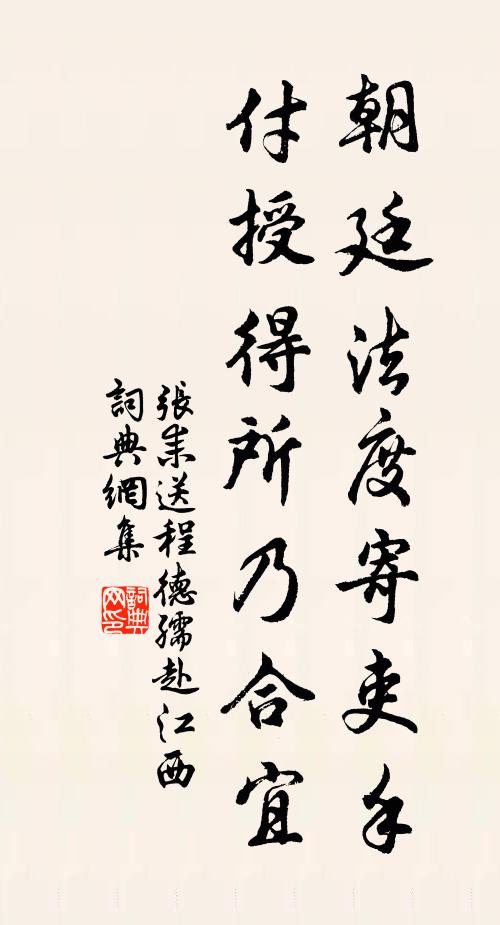 朝廷法度寄吏手
付授得所乃合宜
張耒送程德孺赴江西
詞典網集
詞典网印